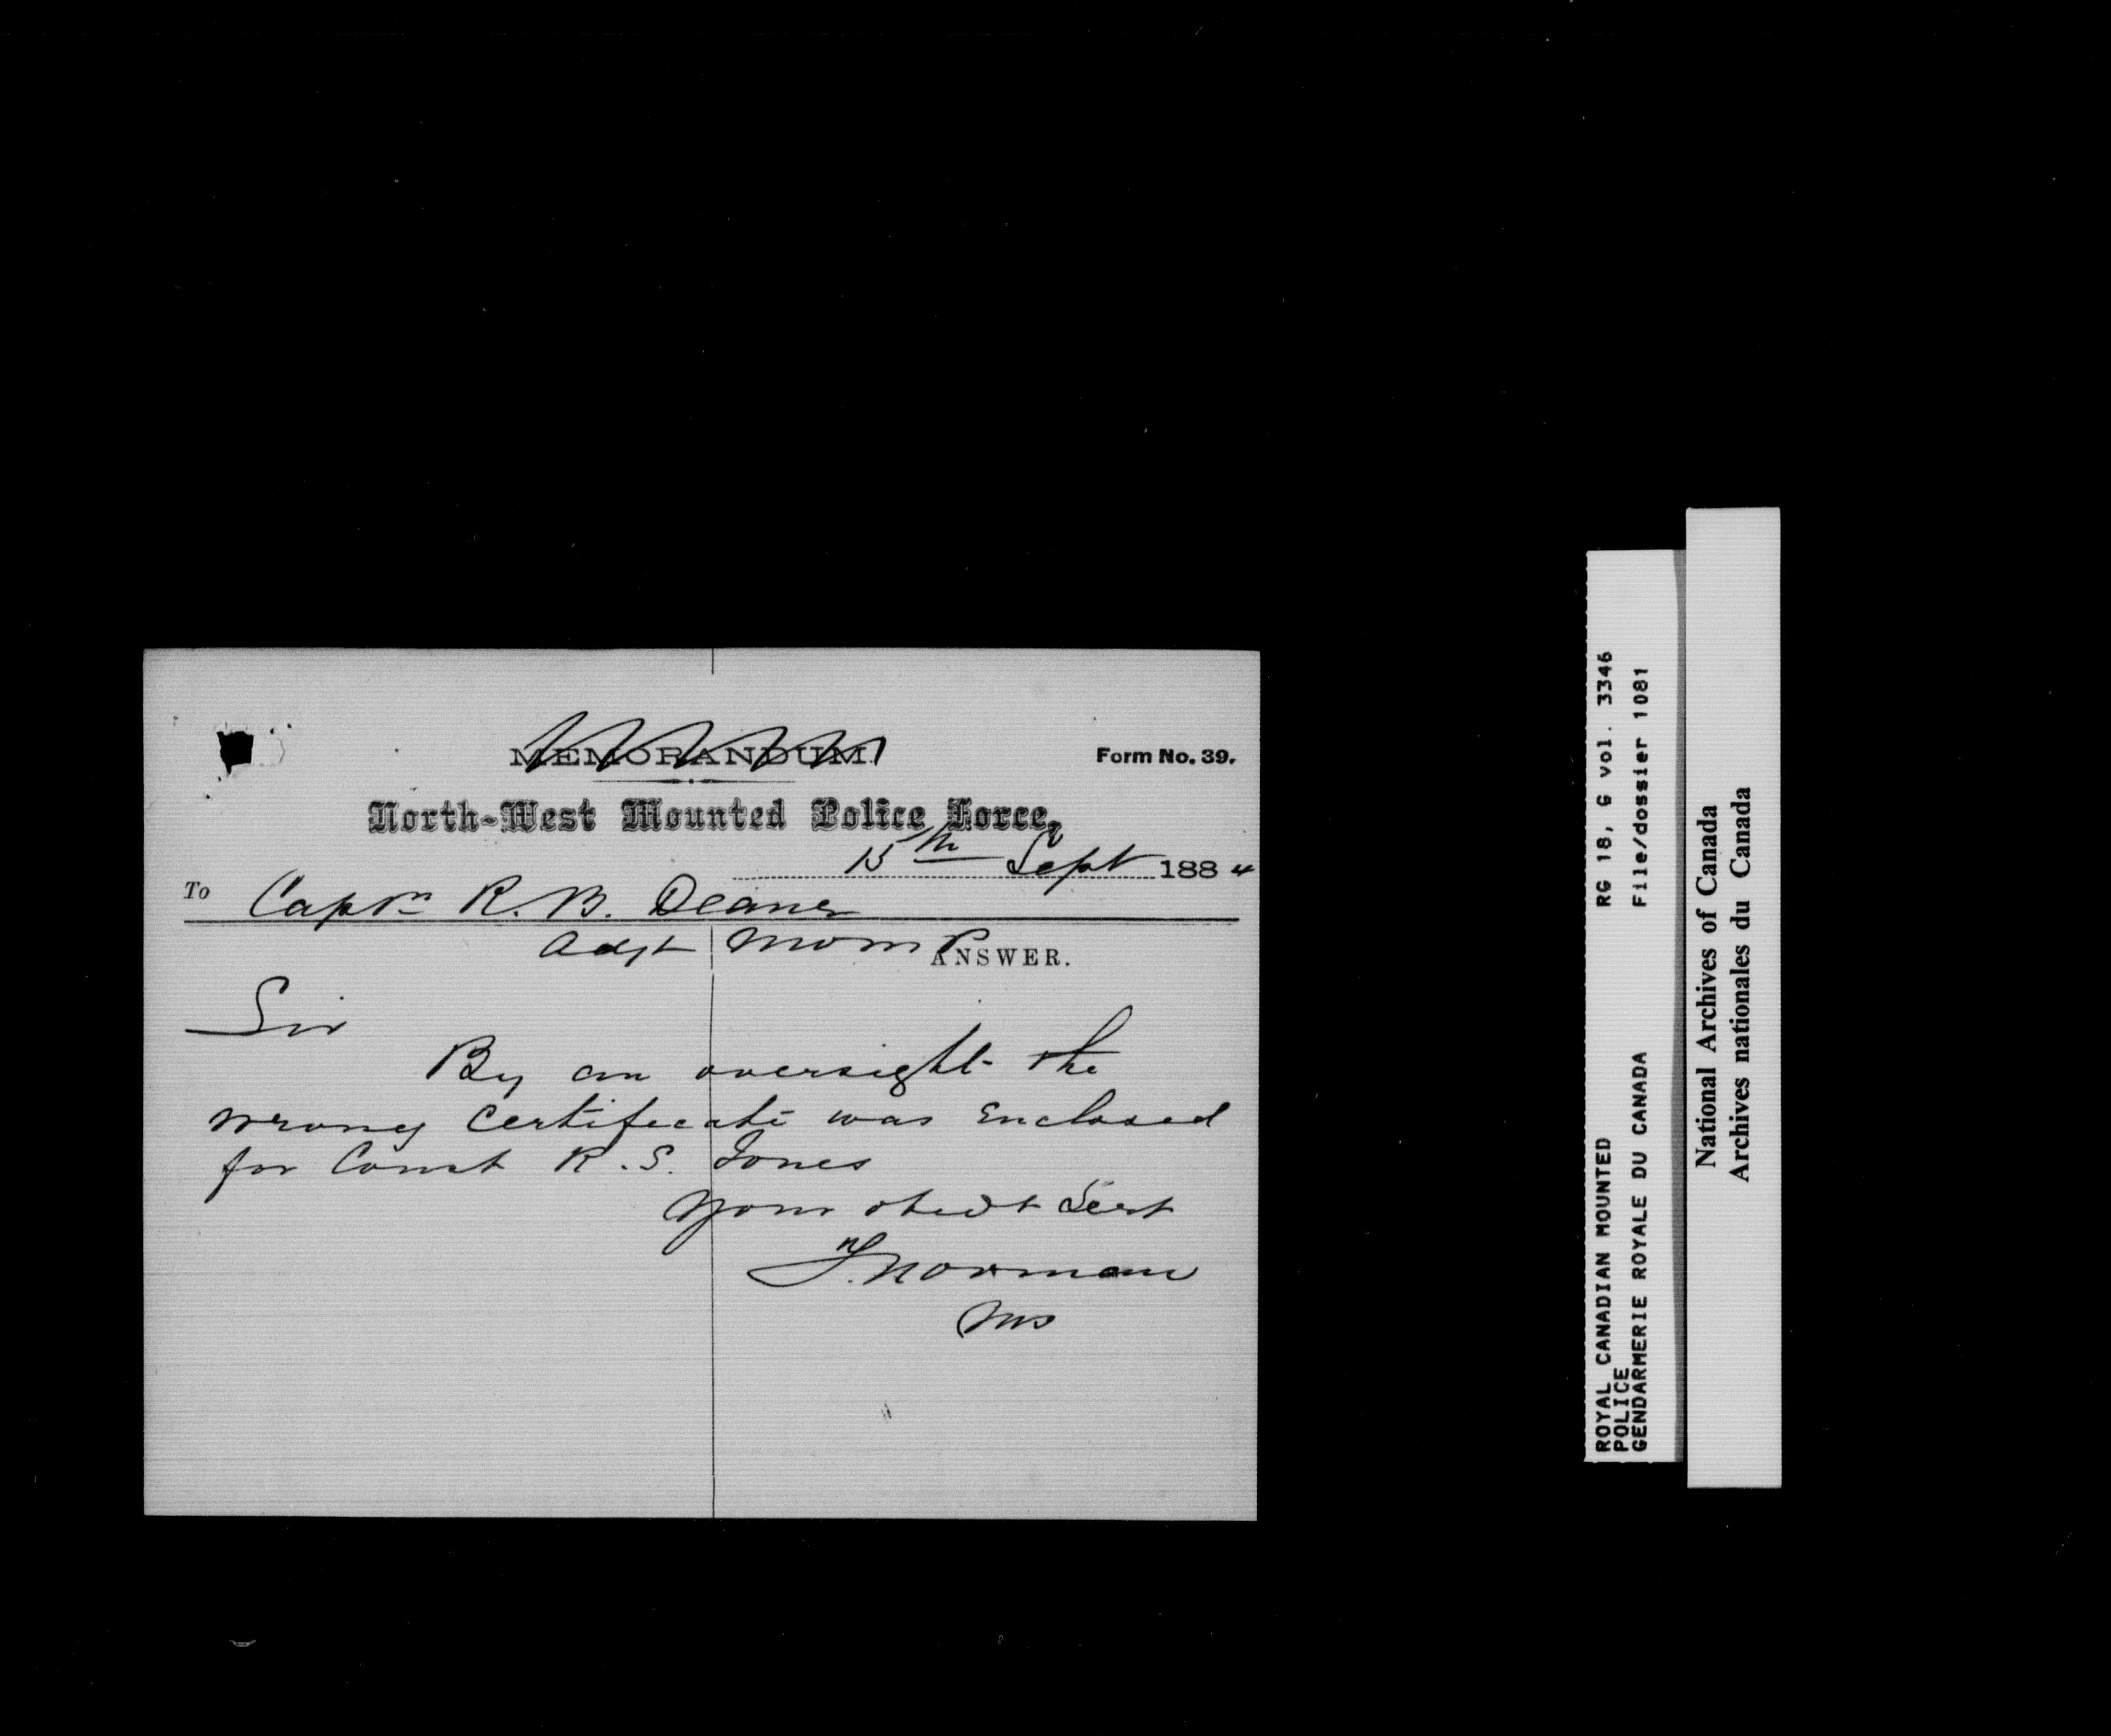 MEMORANDUM.
Form No. 39.
North-West Mounted Police Force,
15th Sept 1884
To Captn R. B. Deane
Adjt NWMP
ANSWER.
Sir
By an oversight the
wrong Certificate was Enclosed
for Const R. S. Jones
Your obedt Servt
Norman
ROYAL CANADIAN MOUNTED
POLICE
GENDARMERIE ROYALE DU CANADA
RG 18, G vol. 3346
File/dossier 1081
National Archives of Canada
Archives nationales du Canada